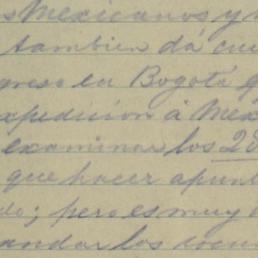 s Mexicanos y n
tambien dá cue
greso en Bogotá q
xpedición á Méx
examinar los 28
que hacer apunt
do; pero es muy d
andar los docum